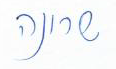 שרונה